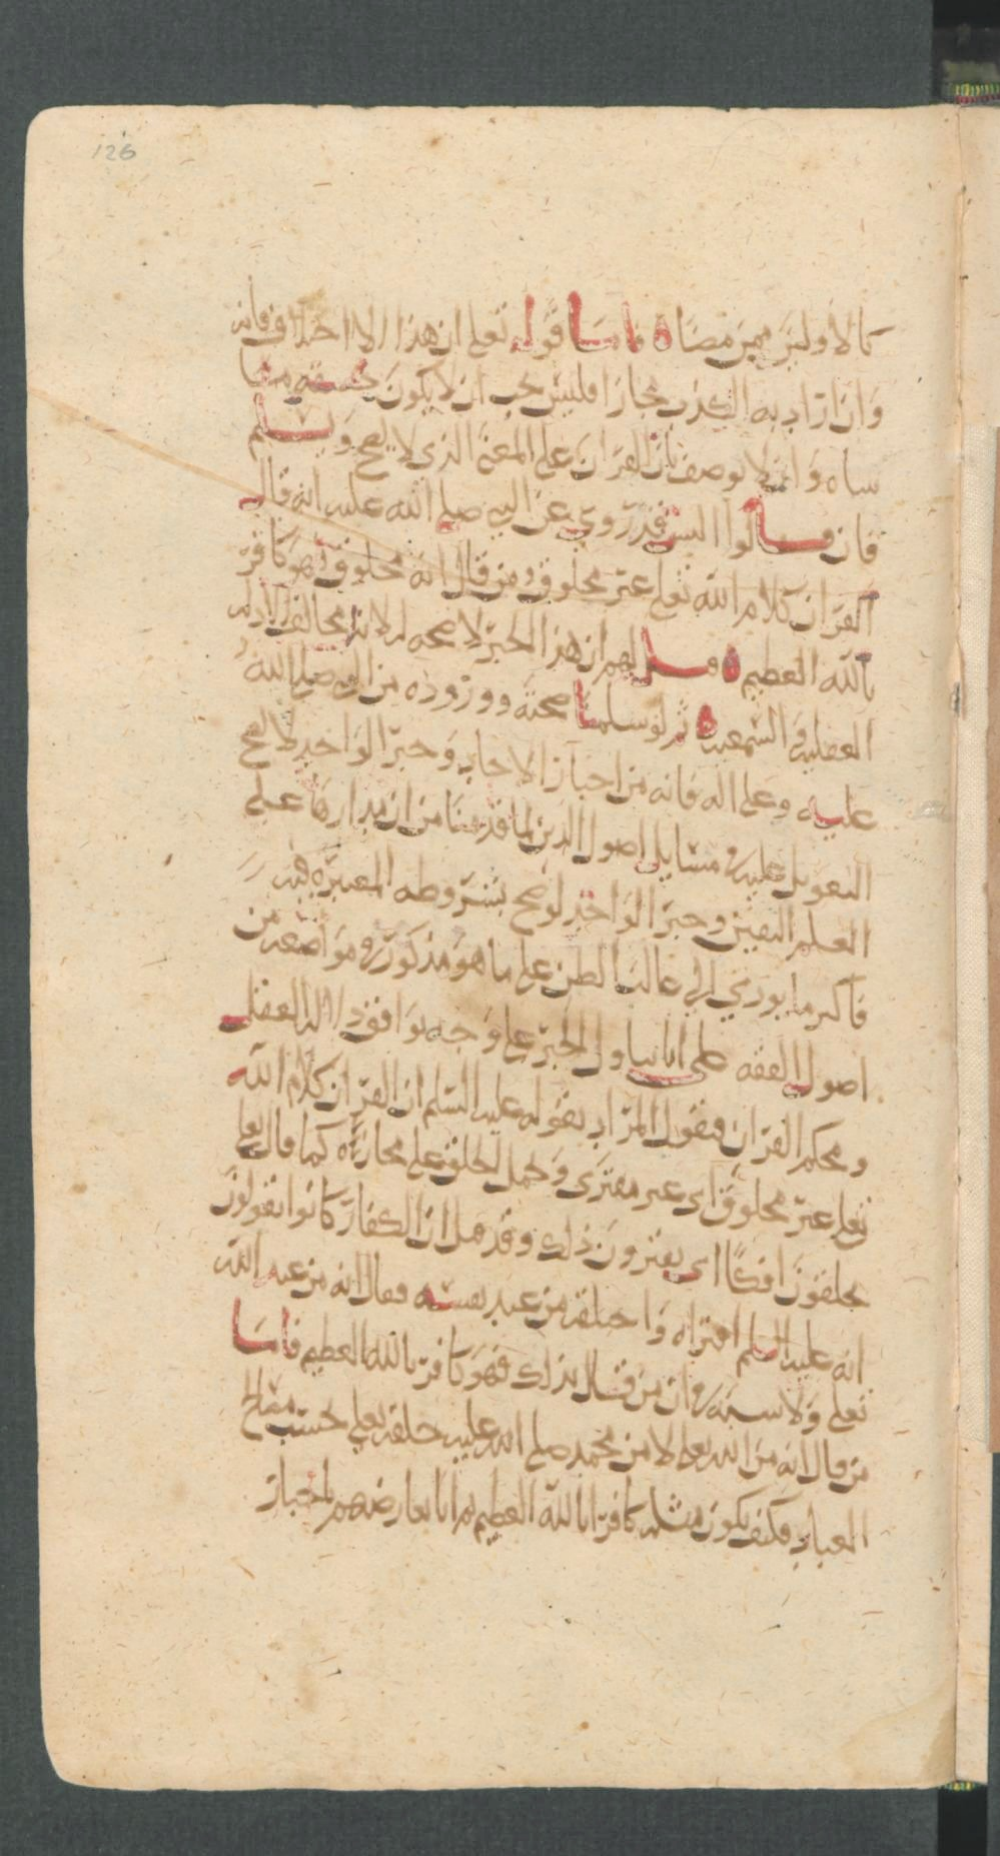 126
كالاولين ممن مضا ه فاما قوله تعلى ان هذا الا اختلاق فانه
وان اراد به الكذب مجازا فليس يجب ان لا يكون حقيقة
ساه وان لا يوصف بان القران على المعنى الذي لا يصح
فان قالوا اليس قد روي عن النبي صلى الله عليه انه قال
القران كلام الله تعلى غير مخلوق ومن قال انه مخلوق فهو كافر
بالله العظيم ه قيل لهم ان هذا الخبر لا صحه له لانه مخالف لادله
العقليه والسمعيه ه ثم لو سلمنا صحته ووروده من النبي صلى الله
عليه وعلى اله فانه من اخبار الاحاد وخبر الواحد لا يصح
التعويل عليه في مسايل اصول الدين لما قدمنا من ان مدارها على
العلم اليقين وخبر الواحد لو صح بشروطه المعتبره فيه
فاكثر ما يودي الى غالب الظن على ما هو مذكور في مواضعه من
اصول الفقه على انا نتاول الخبر على وجه يوافق دلاله العقل
ومحكم القران فنقول المراد بقوله عليه السلم ان القران كلام الله
تعلى غير مخلوق اي غير مفترى وحمل الخلق على مجازه كما قال تعلى
يخلقون افكا اي يفترون ذلك وقد قيل ان الكفار كانوا يقولون
انه عليه السلم افتراه واختلقه من عند نفسه فقال انه من عند الله
تعلى ولا شبهه في ان من قال بذلك فهو كافر بالله العظيم فاما
من قال انه من الله تعلى لا من محمد صلى الله عليه خلقه تعلى لحسب مصالح
العباد فكيف يكون مثله كافرا بالله العظيم ثم انا نعارضهم باخبار